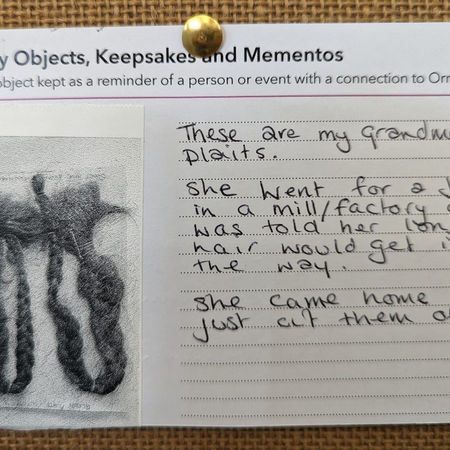 y Objects, Keepsakes and Mementos
object kept as a reminder of a person or event with a connection to Orr
These are my Grandmo
plaits.
She went for a J
in a mill/factory
was told her lon
hair would get i
the way.
She came home
just cut them o